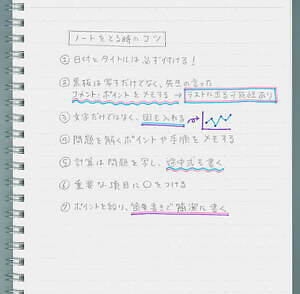 ノートをとる時のコツ
① 日付とタイトルは必ず付ける!
② 黒板は写すだけでなく、先生の言った
コメント・ポイントをメモする → テストに出る可能性あり
③ 文字だけではなく、図も入れる
④ 問題を解くポイントや手順をメモする
⑤ 計算は問題を写し、途中式も書く
⑥ 重要な項目に○をつける
⑦ ポイントを絞り、箇条書きで簡潔に書く